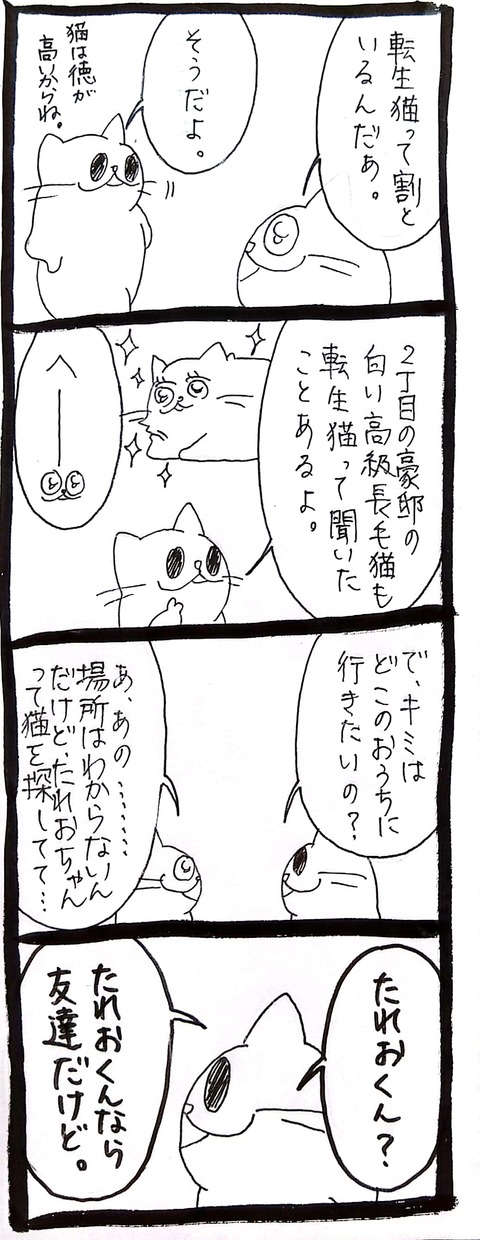 転生猫って割と
いるんだあ。
そうだよ。
猫は徳が
高いからね。
2丁目の豪邸の
白い高級長毛猫も
転生猫って聞いた
ことあるよ。
へー
で、キミは
どこのおうちに
行きたいの?
あ、あの………
場所はわからないん
だけど、たれおちゃん
って猫を探してて…
たれおくん?
たれおくんなら
友達だけど。